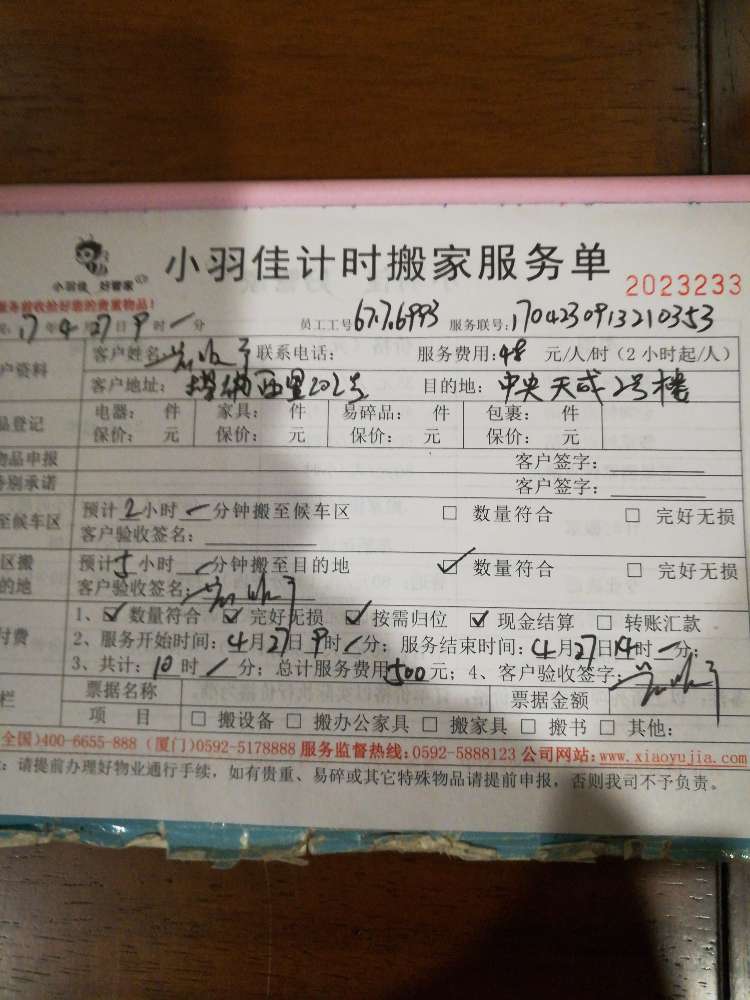 小羽佳 好管家
小羽佳计时搬家服务单 2023233
服务前收拾好您的贵重物品!
17年4月27日9时一分 员工工号 67.7.6993 服务联号:1704230913210353
户资料 客户姓名: 联系电话: 服务费用:48 元/人/时(2小时起/人)
客户地址: 西里202号 目的地: 中央天成2号楼
品登记 电器: 件 家具: 件 易碎品: 件 包裹: 件
保价: 元 保价: 元 保价: 元 保价: 元
物品申报 客户签字:
特别承诺 客户签字:
至候车区 预计2小时一分钟搬至候车区 □ 数量符合 □ 完好无损
客户验收签名:
区搬 预计5小时 分钟搬至目的地 ☑ 数量符合 □ 完好无损
的地 客户验收签名:
1、☑ 数量符合 ☑ 完好无损 ☑ 按需归位 ☑ 现金结算 □ 转账汇款
付费 2、服务开始时间:4月27日9时/分; 服务结束时间:4月27日14时一分;
3、共计:10时/分; 总计服务费用500元; 4、客户验收签字:
栏 票据名称 票据金额
项 目 □ 搬设备 □ 搬办公家具 □ 搬家具 □ 搬书 □ 其他:
全国)400-6655-888 (厦门)0592-5178888 服务监督热线:0592-5888123 公司网站:www.xiaoyujia.com
:请提前办理好物业通行手续,如有贵重、易碎或其它特殊物品请提前申报,否则我司不予负责。